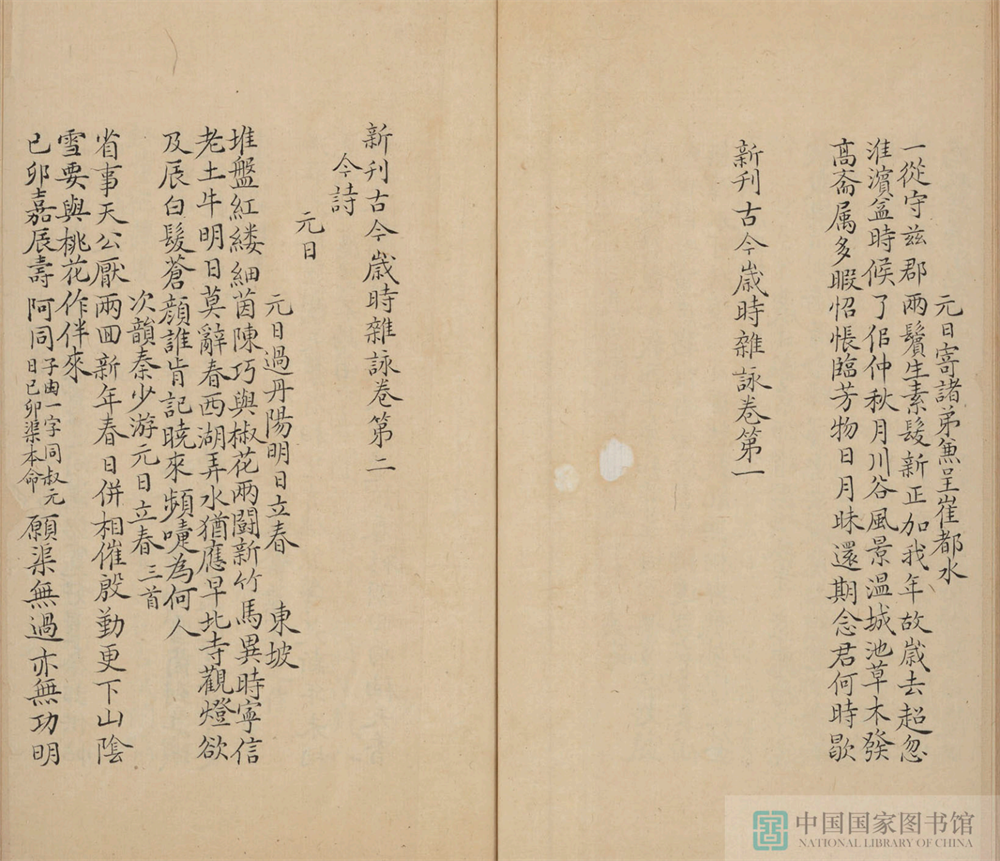 元日寄諸弟兼呈崔都水
一從守兹郡兩鬢生素髮新正加我年故歲去超忽
淮濵益時候了佀仲秋月川谷風景温城池草木發
髙斋属多暇怊悵臨芳物日月昧還期念君何時歇
新刋古今歲時雜詠卷第一
新刋古今歲時雜詠卷第二
今詩
元日
元日過丹陽明日立春 東坡
堆盤紅縷細茵陳巧與椒花兩闘新竹馬異時寧信
老土牛明日莫辭春西湖弄水猶應早北寺觀燈欲
及辰白髮蒼顔誰肯記曉來頻嚏為何人
次韻秦少游元日立春三首
省事天公厭兩回新年春日併相催殷勤更下山陰
雪要與桃花作伴來
己卯嘉辰壽阿同子由一字同叔元日己卯渠本命願渠無過亦無功明
中国国家图书馆
NATIONAL LIBRARY OF CHINA